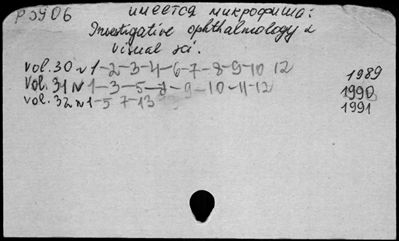 Р3906 имеется микрофиша:
Investigative ophthalmology &
visual sci.
vol. 30 N 1-2-3-4-6-7-8-9-10 12 1989
Vol. 31 N 1-3-5-8-9-10-11-12 1990
vol. 32 N 1-5 7-13 1991